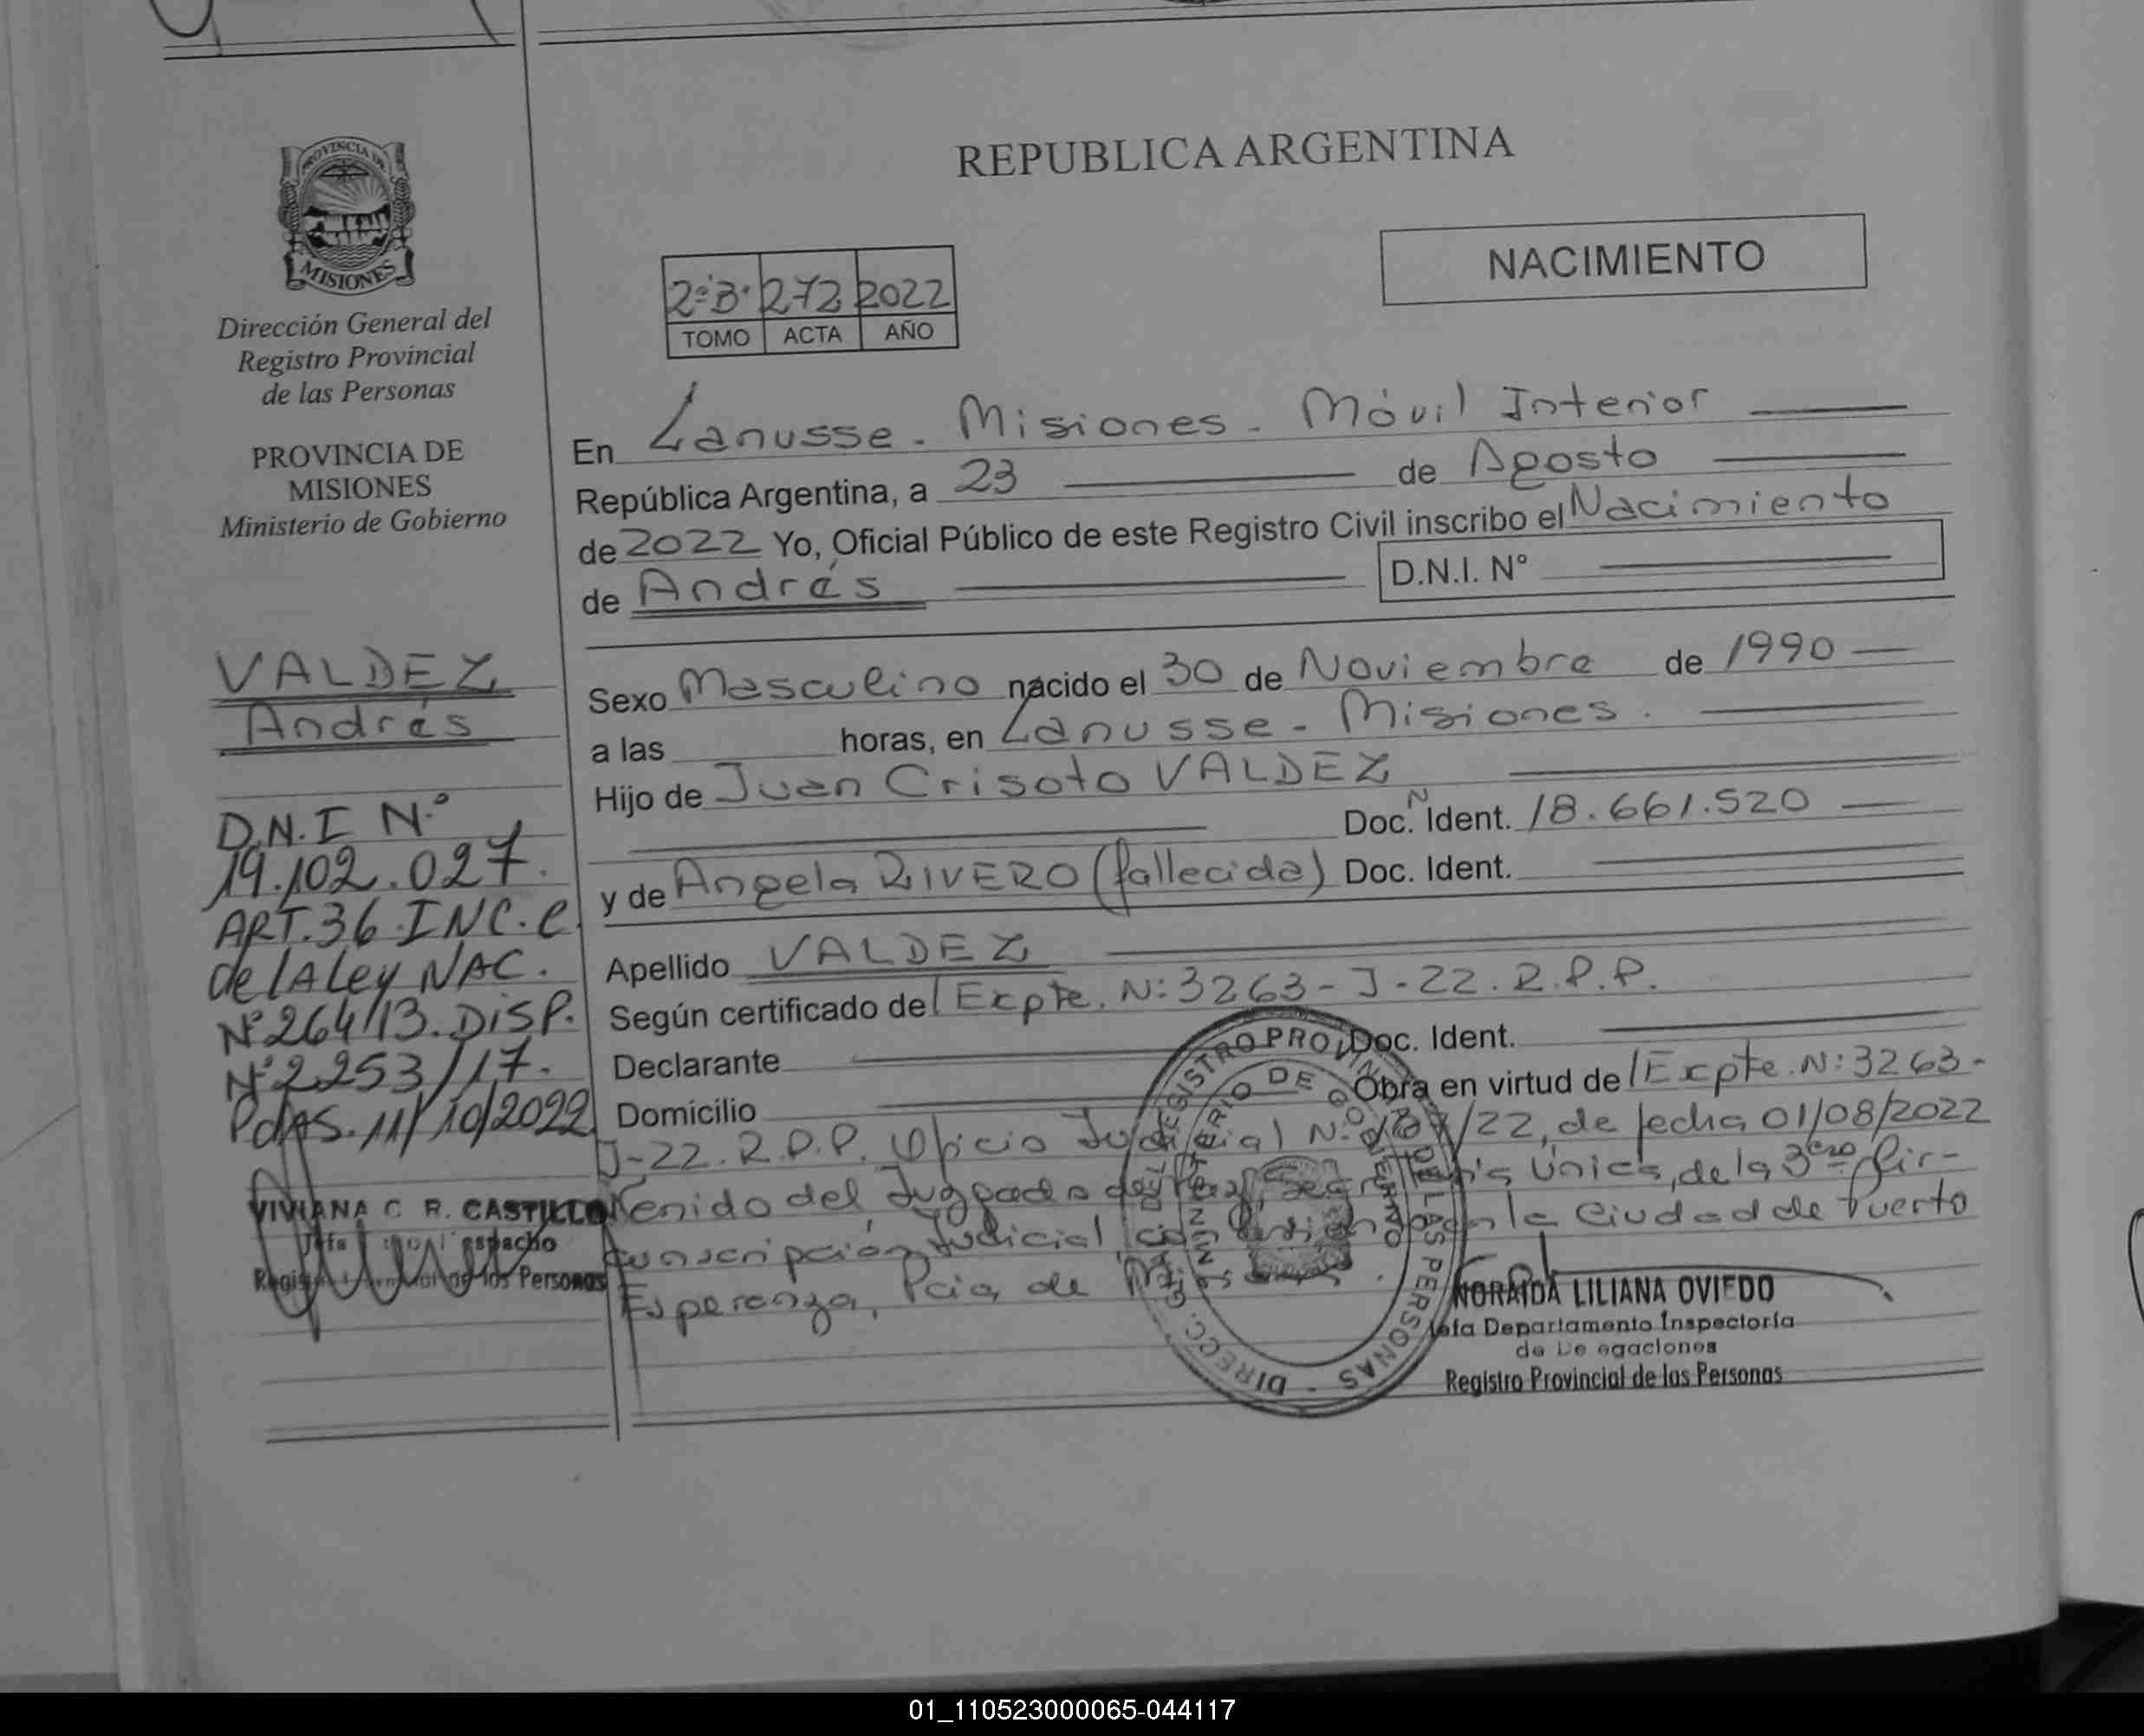 PROVINCIA DE
MISIONES
Dirección General del
Registro Provincial
de las Personas
PROVINCIA DE
MISIONES
Ministerio de Gobierno
VALDEZ
Andrés
D.N.I N.º
19.102.027.
ART.36.INC.C.
de lA Ley NAC.
Nº 264/13. DISP.
Nº 2253/17.
PdAS. 11/10/2022
VIVIANA C. R. CASTILLO
Despacho
de las Personas
REPUBLICA ARGENTINA
NACIMIENTO
2º"B" 272 2022
TOMO ACTA AÑO
En Lanusse - Misiones - Móvil Interior
República Argentina, a 23 de Agosto
de 2022 Yo, Oficial Público de este Registro Civil inscribo el Nacimiento
de Andrés D.N.I. Nº
Sexo Masculino nacido el 30 de Noviembre de 1990
a las horas, en Lanusse - Misiones.
Hijo de Juan Crisoto VALDEZ
Doc. N Ident. 18.661.520
y de Angela RIVERO (fallecida) Doc. Ident.
Apellido VALDEZ
Según certificado del Expte. N: 3263-J-22. R.P.P.
Declarante Doc. Ident.
Domicilio Obra en virtud del Expte. N: 3263-
J-22. R.P.P. Oficio Judicial Nº /22, de fecha 01/08/2022
venido del Juzgado de Paz, Única, de la 3era Cir-
cunscripción Judicial, con en la Ciudad de Puerto
Esperanza, Pcia de Misiones.
DIRECC. GRAL. DEL REGISTRO PROVINCIAL DE LAS PERSONAS
MINISTERIO DE GOBIERNO
NORAIDA LILIANA OVIEDO
Jefa Departamento Inspectoría
de Delegaciones
Registro Provincial de las Personas
01_110523000065-044117